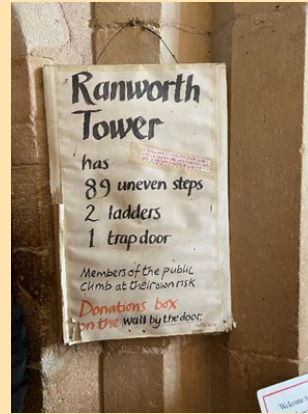 Ranworth
Tower
has
89 uneven steps
2 ladders
1 trapdoor
Members of the public
climb at their own risk
Donations box
on the wall by the door.
Welcome